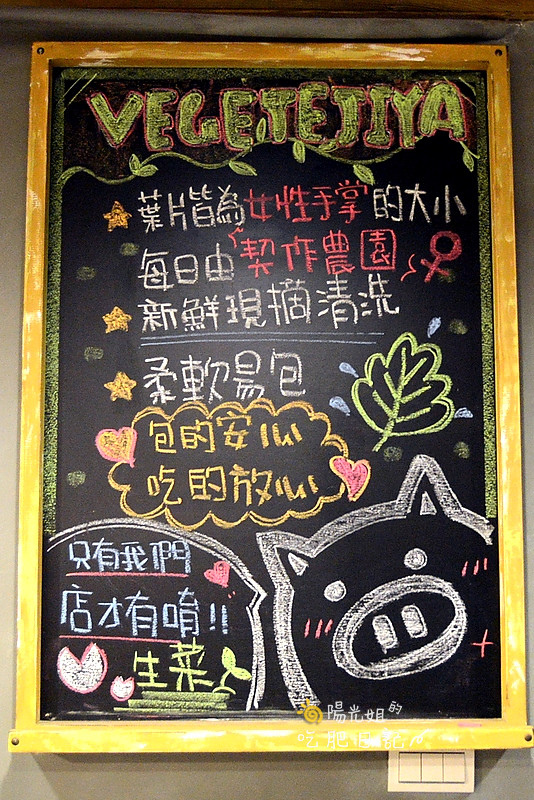 VEGETEJIYA
葉片皆為女性手掌的大小
每日由契作農園
新鮮現摘清洗
柔軟易包
包的安心
吃的放心
只有我們
店才有唷!!
生菜
陽光姐的
吃肥日記